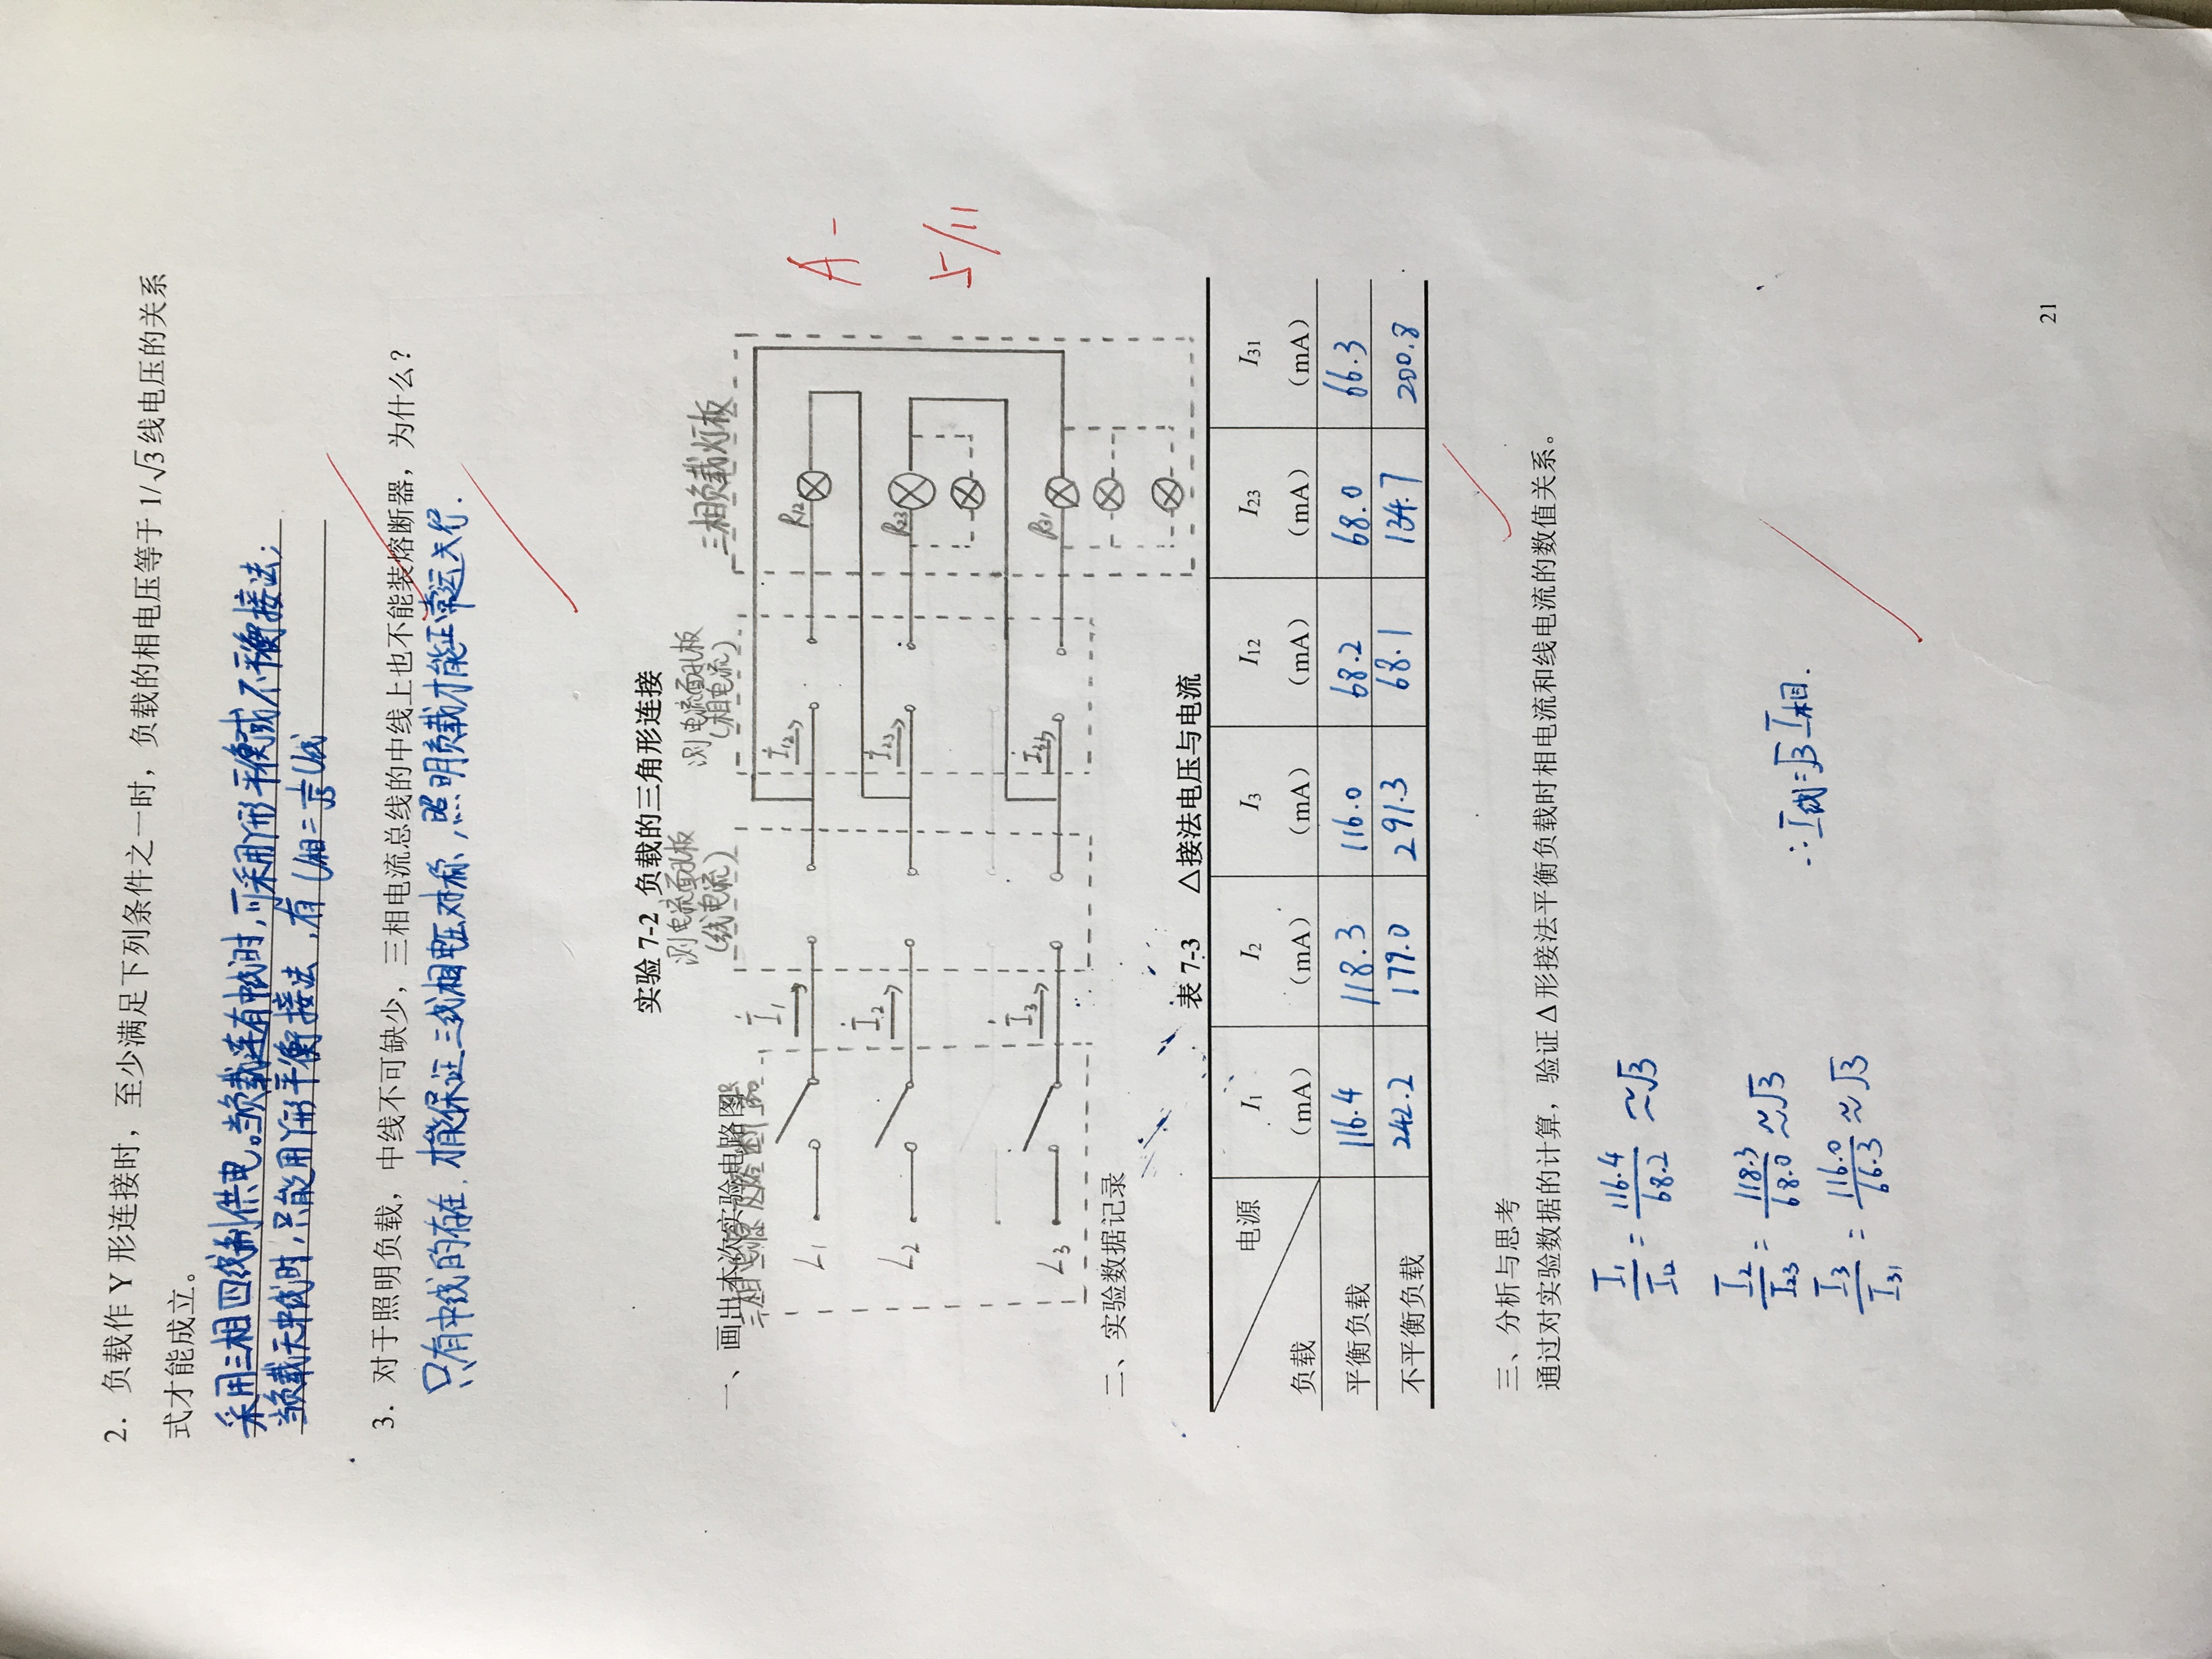 2. 负载作 Y 形连接时，至少满足下列条件之一时，负载的相电压等于 1/√3 线电压的关系
式才能成立。
采用三相四线制供电。当负载连有中线时，可采用Y形平衡或不平衡接法；
当负载无中线时，只能用Y形平衡接法，有 U相=1/√3 U线
3. 对于照明负载，中线不可缺少，三相电流总线的中线上也不能装熔断器，为什么？
只有中线的存在，才能保证三线相电压对称，照明负载才能正常运行.
实验 7-2 负载的三角形连接
测电流面孔板
（线电流）
测电流面孔板
（相电流）
三相负载灯板
一、画出本次实验电路图
三相电源及熔断器
İ1
İ12
R12
L1
İ2
İ23
R23
L2
İ3
İ31
R31
L3
A-
5/11
二、实验数据记录
表 7-3 △接法电压与电流
电源 I1 I2 I3 I12 I23 I31
负载 （mA） （mA） （mA） （mA） （mA） （mA）
平衡负载 116.4 118.3 116.0 68.2 68.0 66.3
不平衡负载 242.2 179.0 291.3 68.1 134.7 200.8
三、分析与思考
通过对实验数据的计算，验证 Δ 形接法平衡负载时相电流和线电流的数值关系。
I1/I12 = 116.4/68.2 ≈√3
I2/I23 = 118.3/68.0 ≈√3
∴I线=√3 I相.
I3/I31 = 116.0/66.3 ≈√3
21